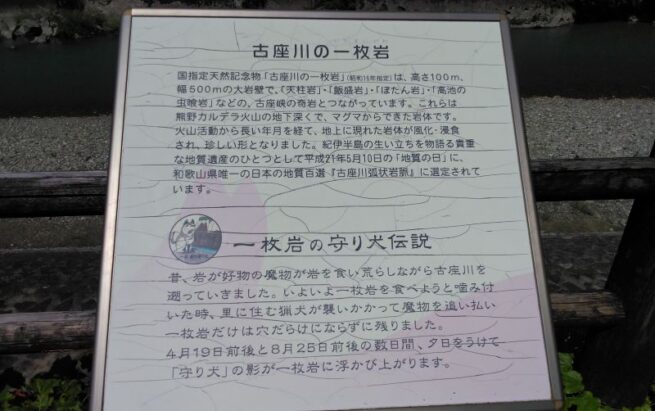 古座川の一枚岩
国指定天然記念物「古座川の一枚岩」(昭和16年指定)は、高さ100m、
幅500mの大岩壁で、「天柱岩」・「飯盛岩」・「ぼたん岩」・「高池の
虫喰岩」などの、古座峡の奇岩とつながっています。これらは
熊野カルデラ火山の地下深くで、マグマからできた岩体です。
火山活動から長い年月を経て、地上に現れた岩体が風化・浸食
され、珍しい形となりました。紀伊半島の生い立ちを物語る貴重
な地質遺産のひとつとして平成21年5月10日の「地質の日」に、
和歌山県唯一の日本の地質百選『古座川弧状岩脈』に選定されて
います。
一枚岩の守り犬伝説
昔、岩が好物の魔物が岩を食い荒らしながら古座川を
遡っていきました。いよいよ一枚岩を食べようと噛み付
いた時、里に住む猟犬が襲いかかって魔物を追い払い
一枚岩だけは穴だらけにならずに残りました。
4月19日前後と8月25日前後の数日間、夕日をうけて
「守り犬」の影が一枚岩に浮かび上がります。